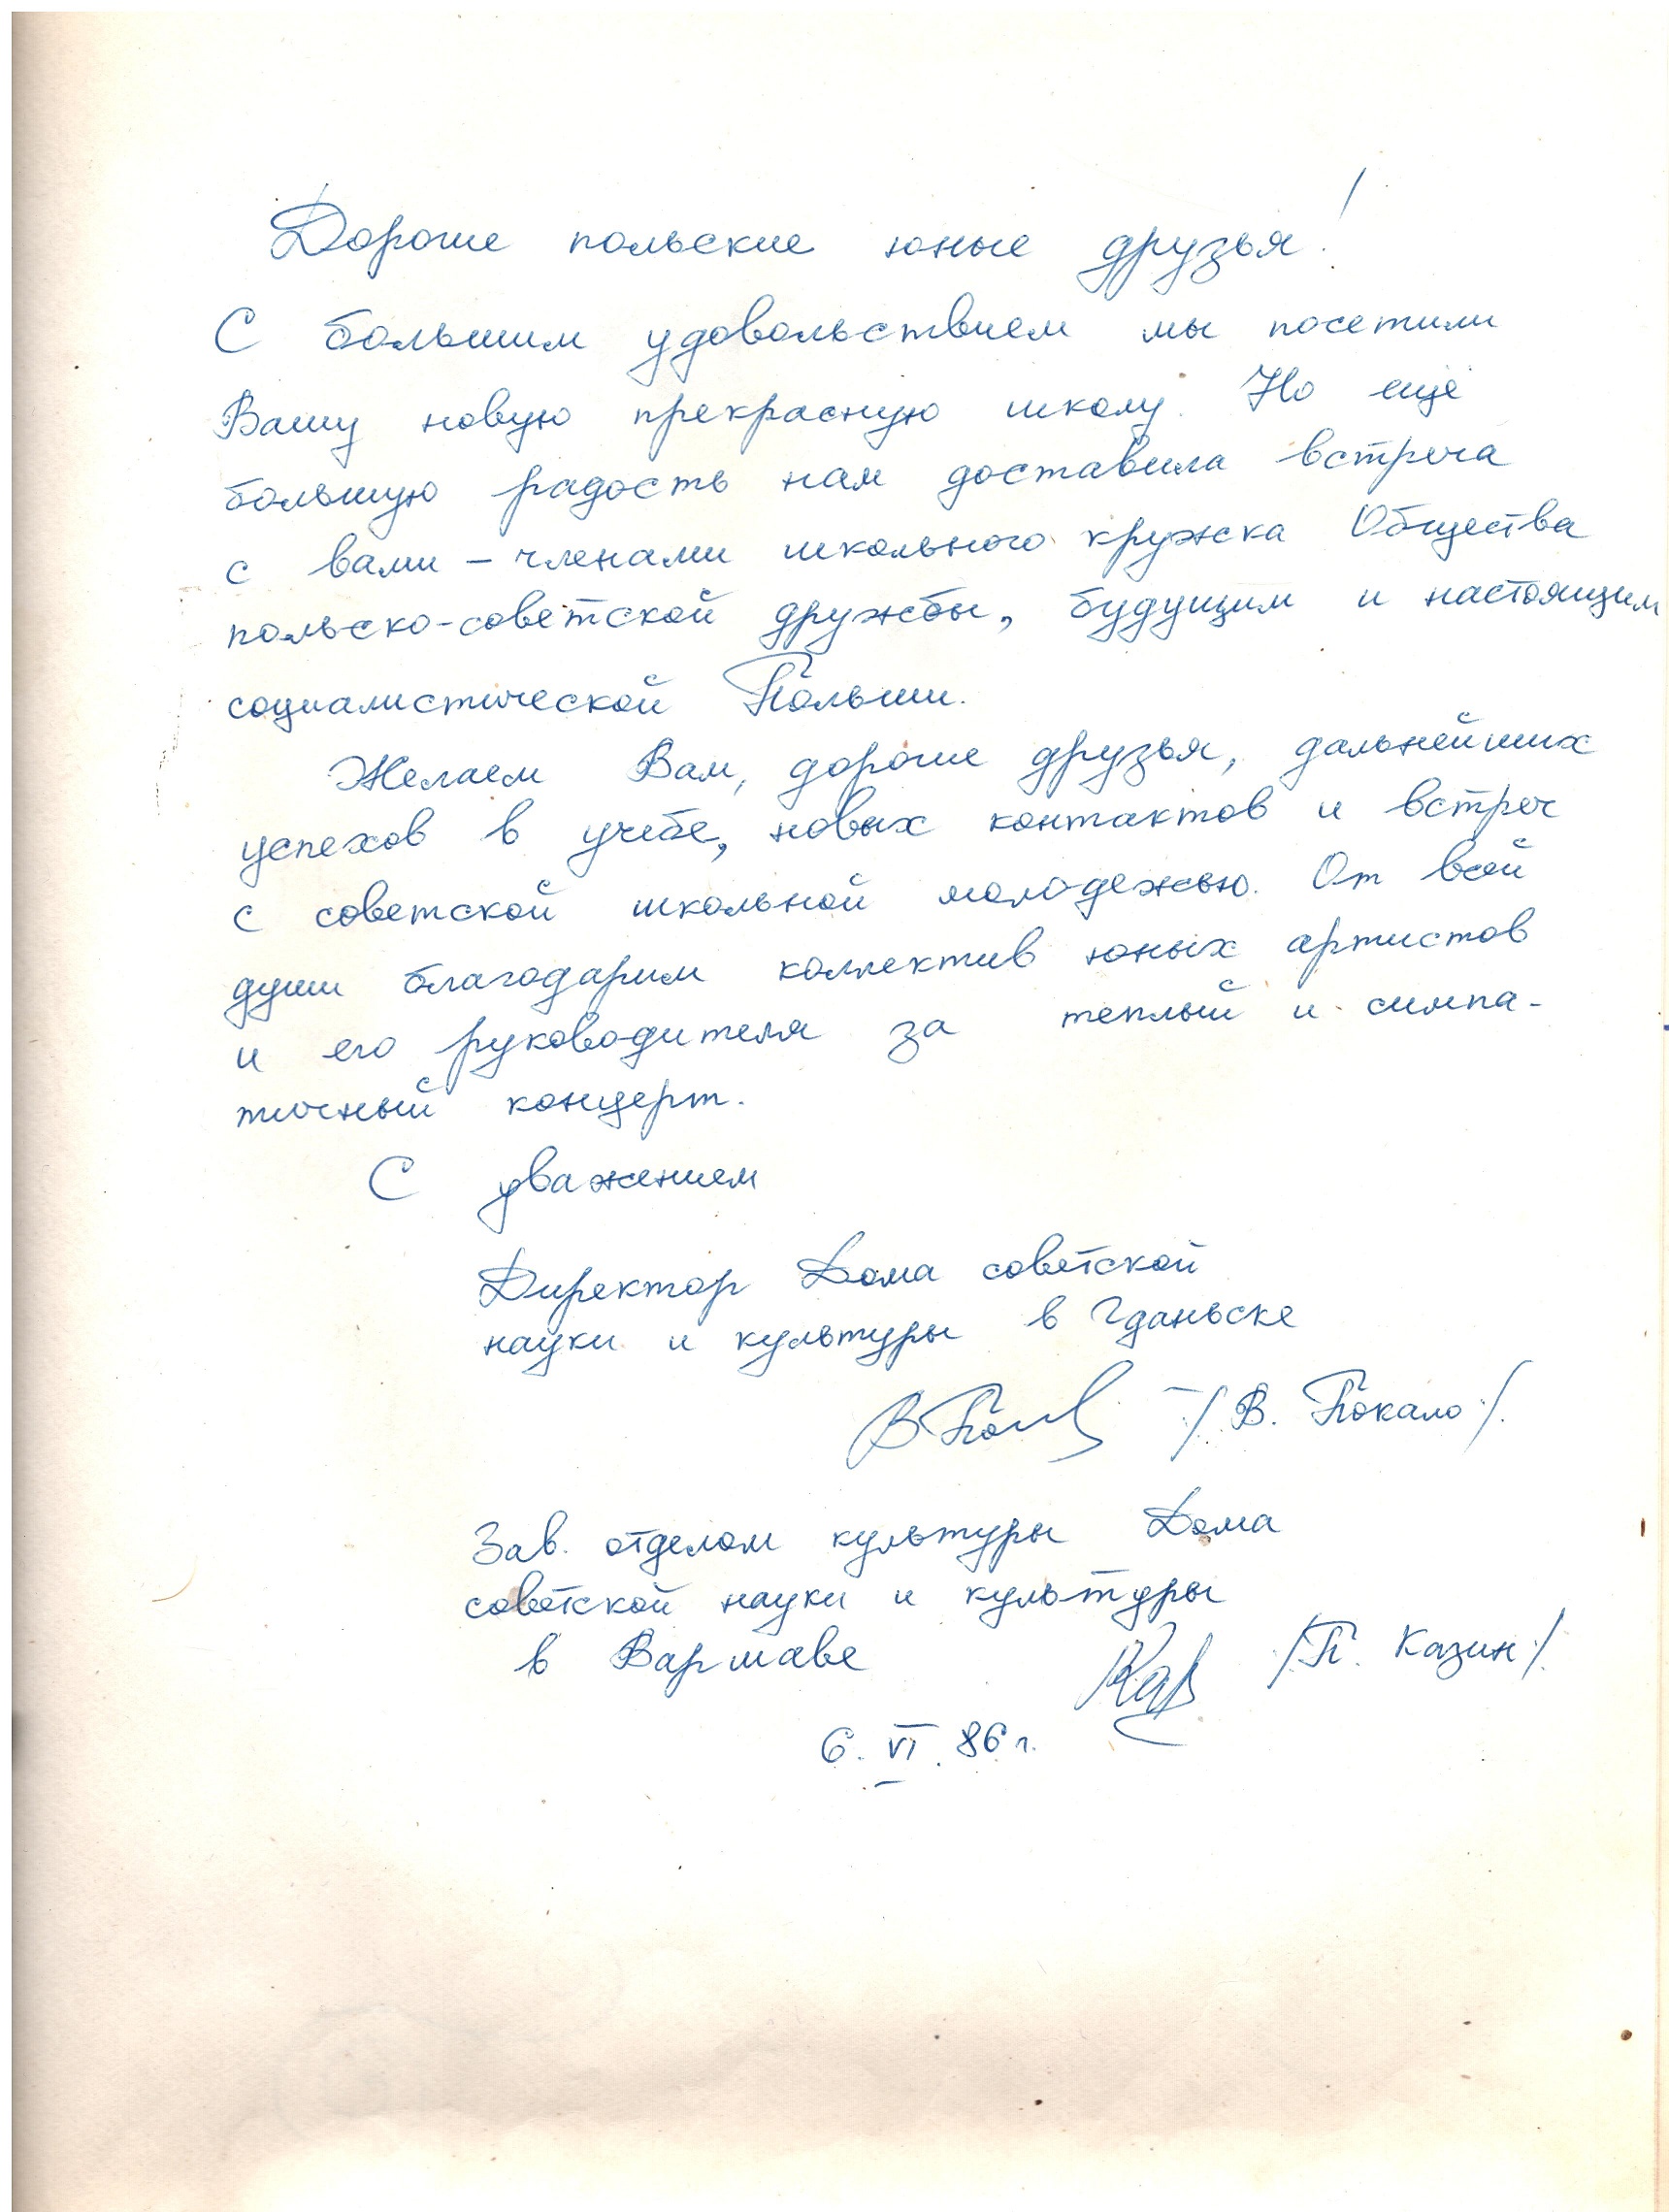 Дорогие польские юные друзья!
С большим удовольствием мы посетили
Вашу новую прекрасную школу. Но еще
большую радость нам доставила встреча
с вами – членами школьного кружка Общества
польско-советской дружбы, будущим и настоящим
социалистической Польши.
Желаем Вам, дорогие друзья, дальнейших
успехов в учебе, новых контактов и встреч
с советской школьной молодежью. От всей
души благодарим коллектив юных артистов
и его руководителя за теплый и симпа-
тичный концерт.
С уважением
Директор Дома советской
науки и культуры в Гданьске
/В. Покало/.
Зав. отделом культуры Дома
советской науки и культуры
в Варшаве /П. Казин/.
6. VI. 86 г.